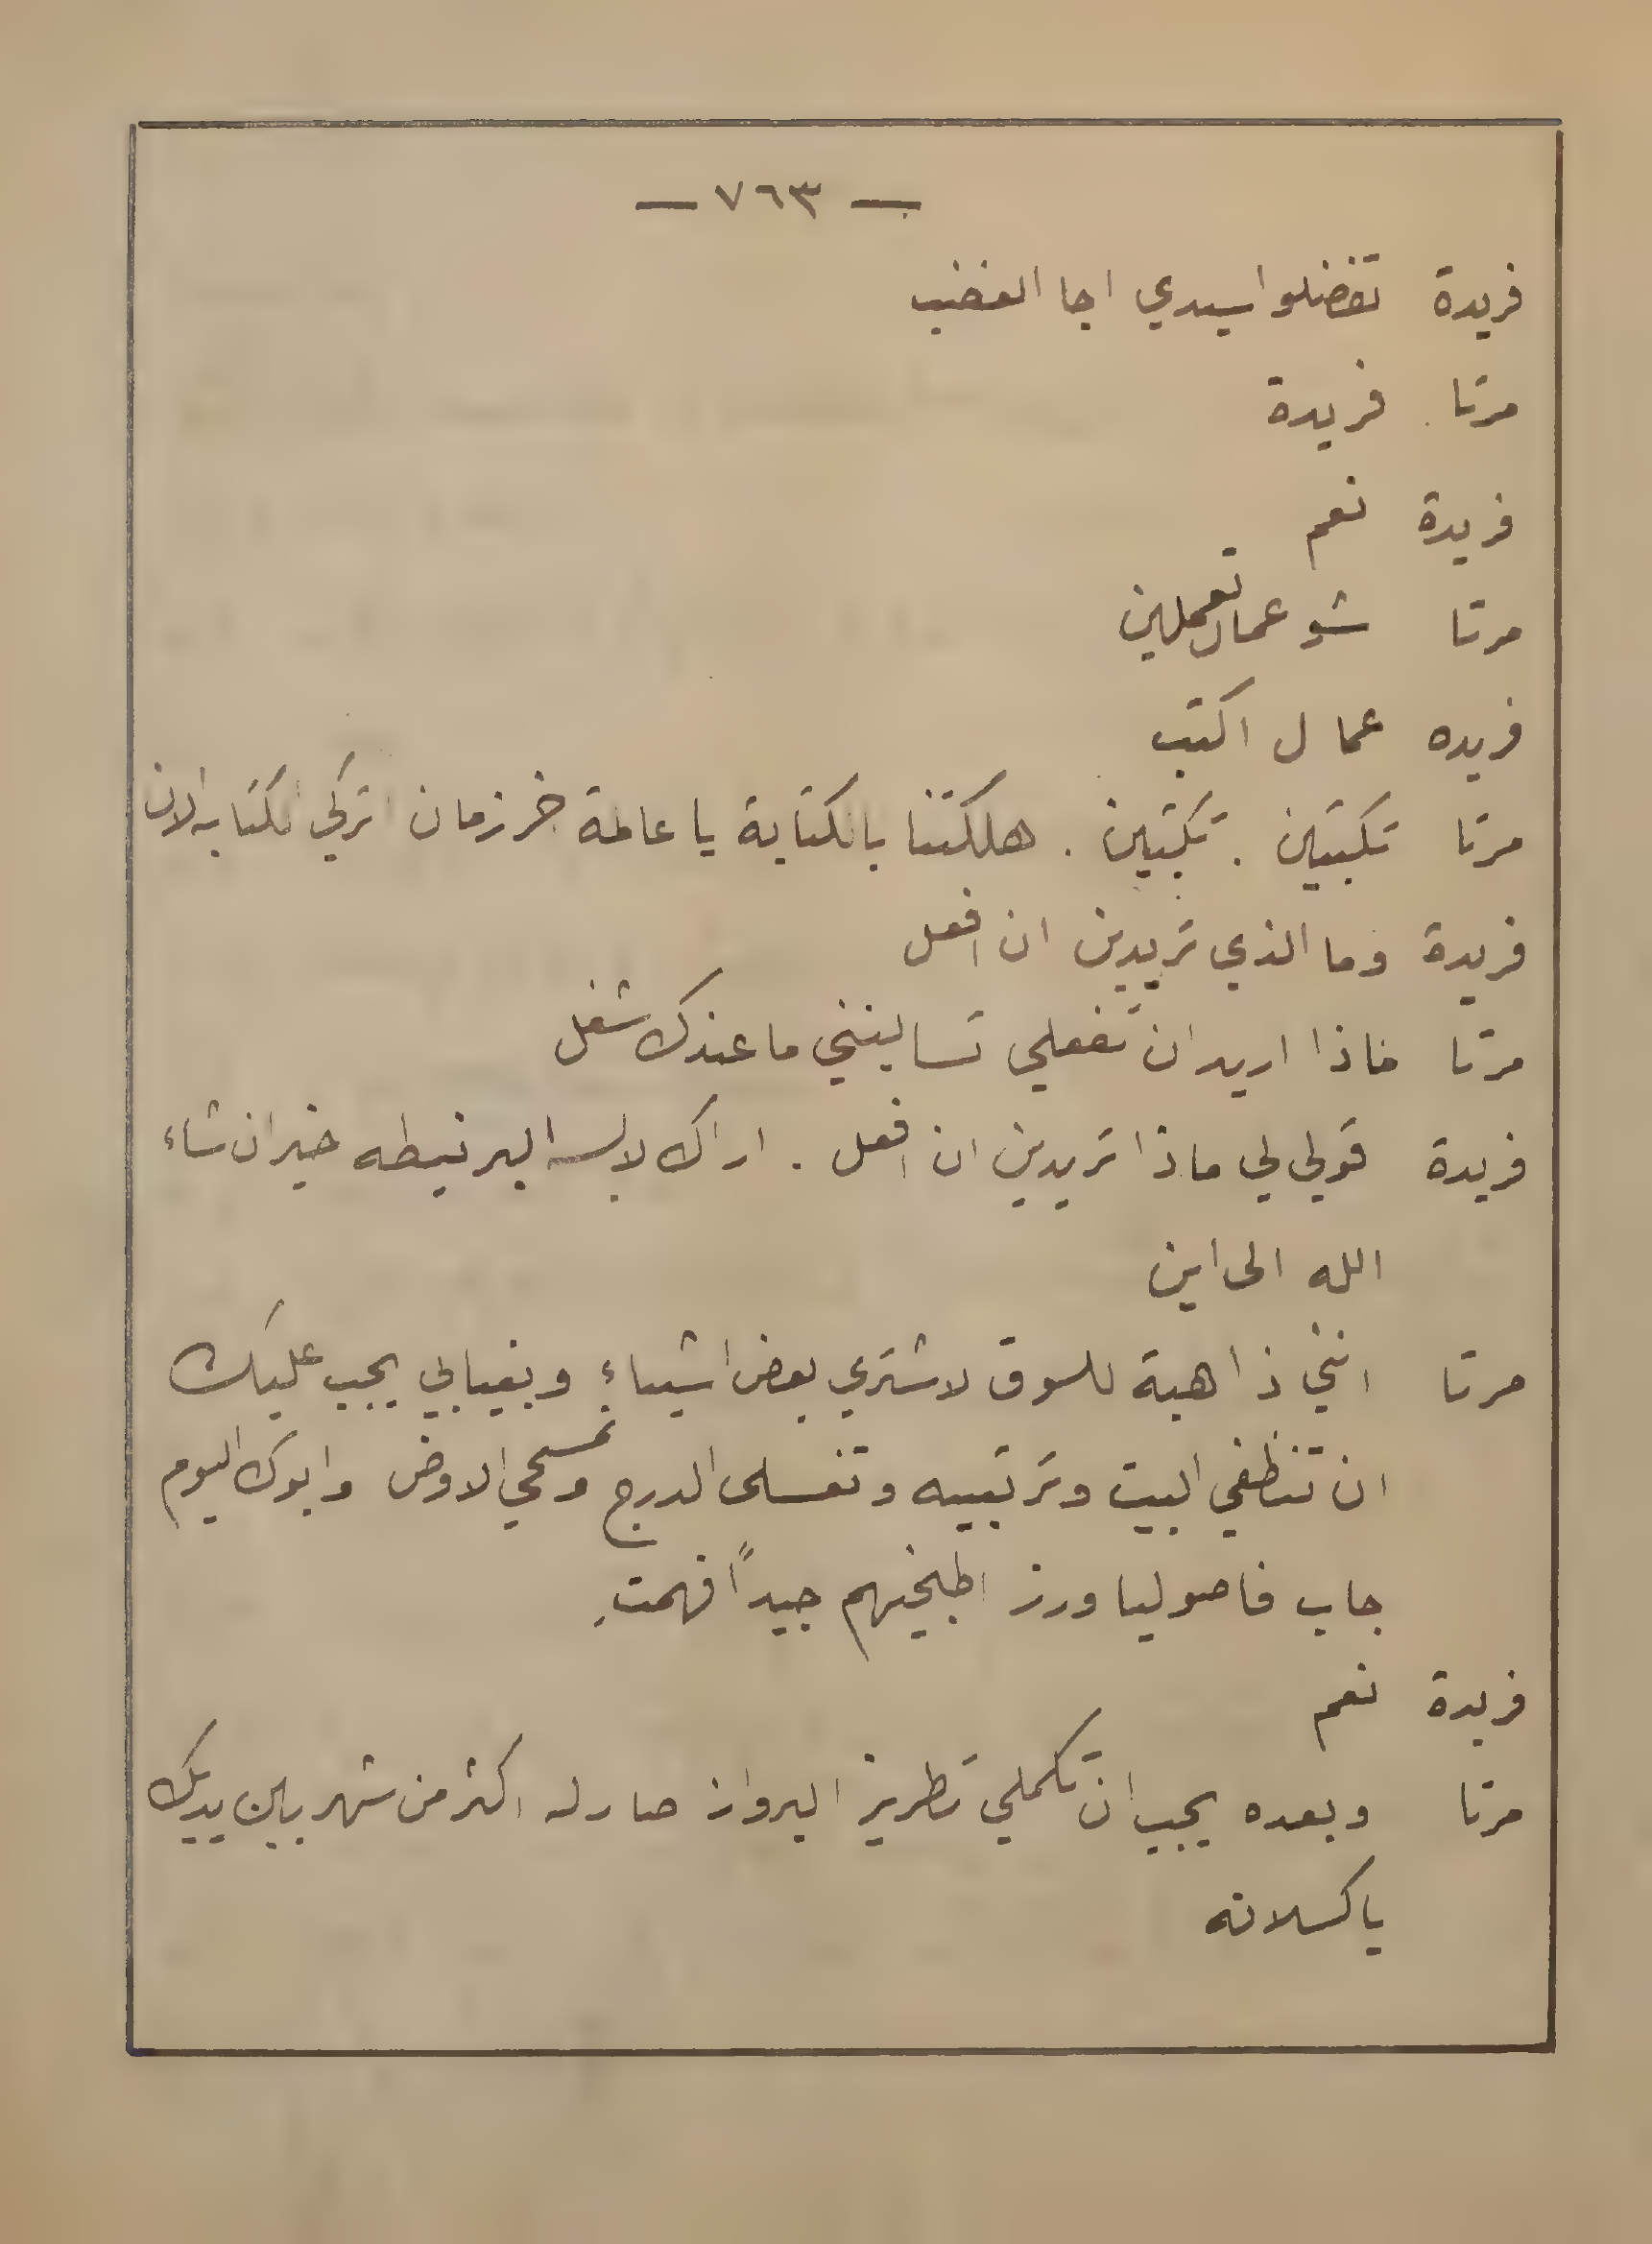 — ٧٦٣ —
فريدة تفضلوا سيدي اجا الغضب
مرتا فريدة
فريدة نعم
مرتا شو عمال تعملين
فريده عمال اكتب
مرتا تكتبين . تكتبين . هلكتنا بالكتابة يا عالمة اخر زمان اتركي الكتابه الان
فريدة وما الذي تريدين ان افعل
مرتا ماذا اريد ان تفعلي تسالينني ما عندك شغل
فريدة قولي لي ماذا تريدين ان افعل . اراك لابسه البرنيطه خير ان شاء
الله الى اين
مرتا انني ذاهبة للسوق لاشتري بعض اشياء وبغيابي يجب عليك
ان تنظفي البيت وترتبيه وتغسلي الدرج وتمسحي الاوض وابوك اليوم
جاب فاصوليا ورز اطبخيهم جيداً فهمتِ
فريدة نعم
مرتا وبعده يجب ان تكملي تطريز البرواز صار له اكثر من شهر بين يديك
يا كسلانه